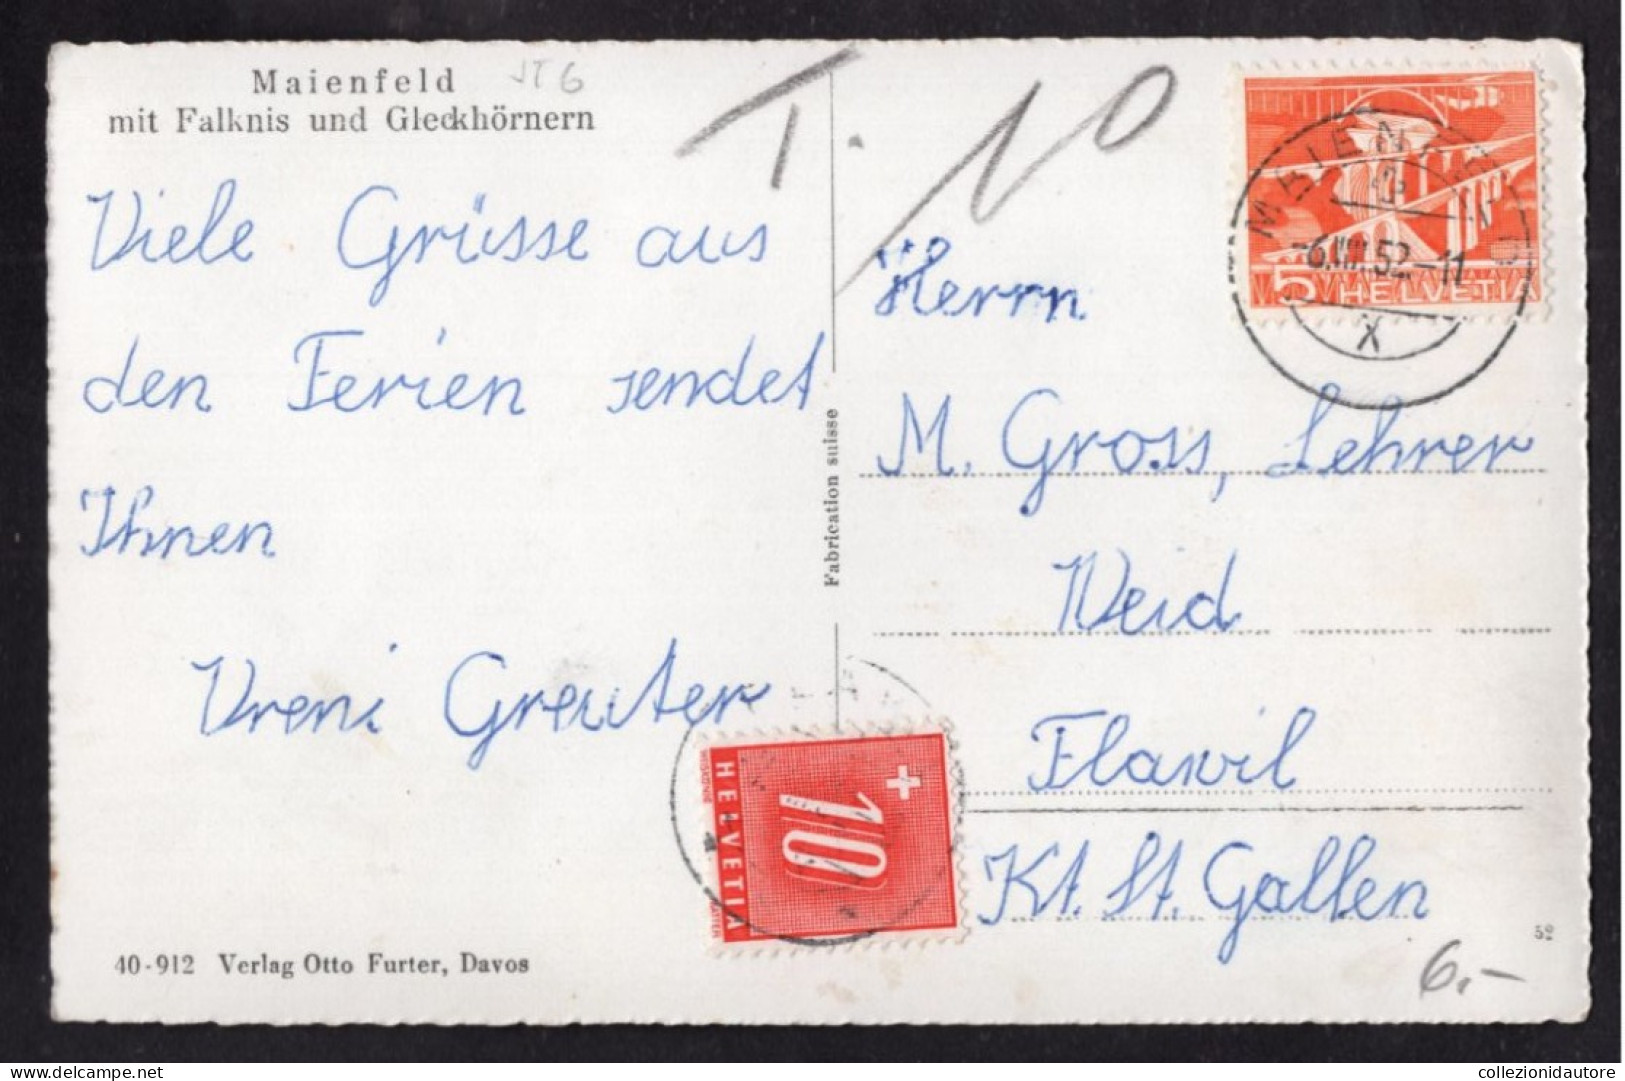 Maienfeld
mit Falknis und Gleckhörnern
Viele Grüsse aus
den Ferien sendet
Ihnen
Vreni Greuter
40-912 Verlag Otto Furter, Davos
Fabrication suisse
T. 10
5 HELVETIA
MAIENFELD
-6.VIII.52.-11
X
Herrn
M. Gross, Lehrer
Weid
Flawil
Kt. St. Gallen
10
HELVETIA
52
6.-
collezionidautore